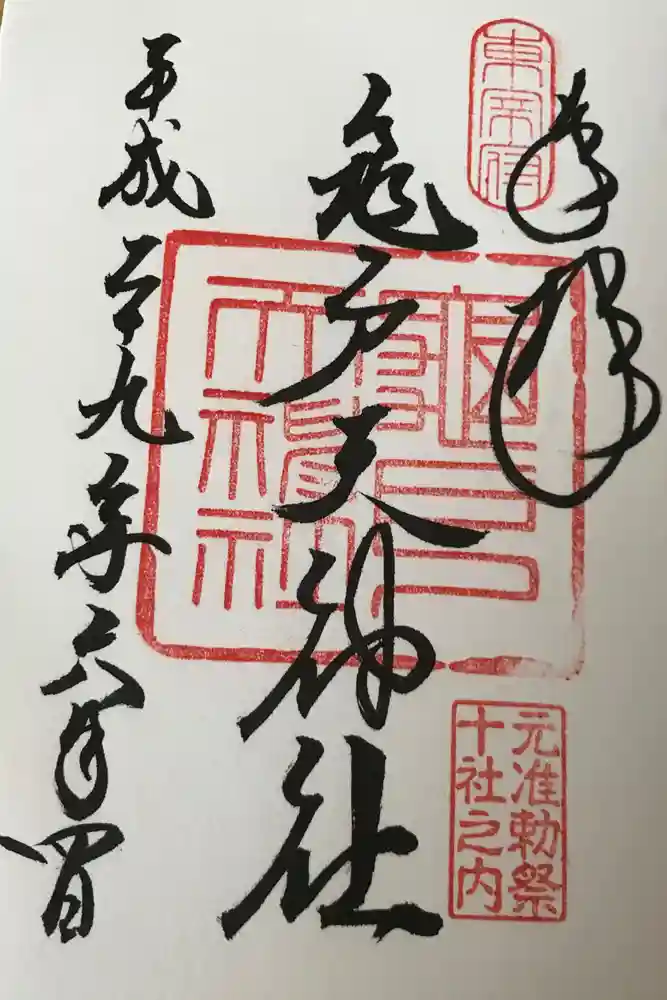 奉拝
東宰府
元准勅祭
十社之内
亀戸天神社
平成二十九年六月四日